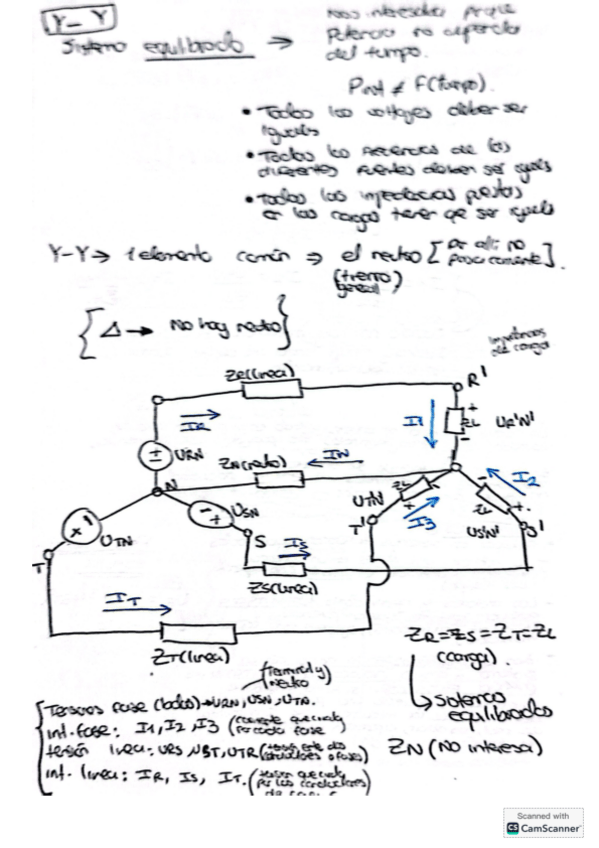 Y-Y
Sistema equilibrado → Nos interesa porque
potencia no dependa
del tiempo.
Pinst ≠ F(tiempo).
• Todos los voltajes deben ser
iguales
• Todas las frecuencias de las
diferentes fuentes deben ser iguales
• Todas las impedancias puestas
en las cargas tienen que ser iguales
Y-Y → 1 elemento común ⇒ el neutro [Por allí no
pasa corriente].
(tierra
general)
{Δ → No hay neutro}
impedancias
de carga
ZR(línea)
R'
IR
I1
+
ZL
-
UR'N'
±
URN
ZN(neutro)
IN
N
- +
USN
UTN
T
S
IS
ZS(línea)
UTN
ZL
+
T'
I3
-
ZL
+
I2
US'N'
S'
IT
ZT(línea)
ZR=ZS=ZT=ZL
(carga).
↳ sistemas
equilibrados
ZN (NO interesa)
(terminal y
neutro
Tensiones fase (todos) → URN, USN, UTN.
int. fase: I1, I2, I3 (corriente que circula
por cada fase
tensión línea: URS, UST, UTR (tensión entre dos
conductores o fases)
int. línea: IR, IS, IT. (que circula
por los conductores
Scanned with
CS CamScanner